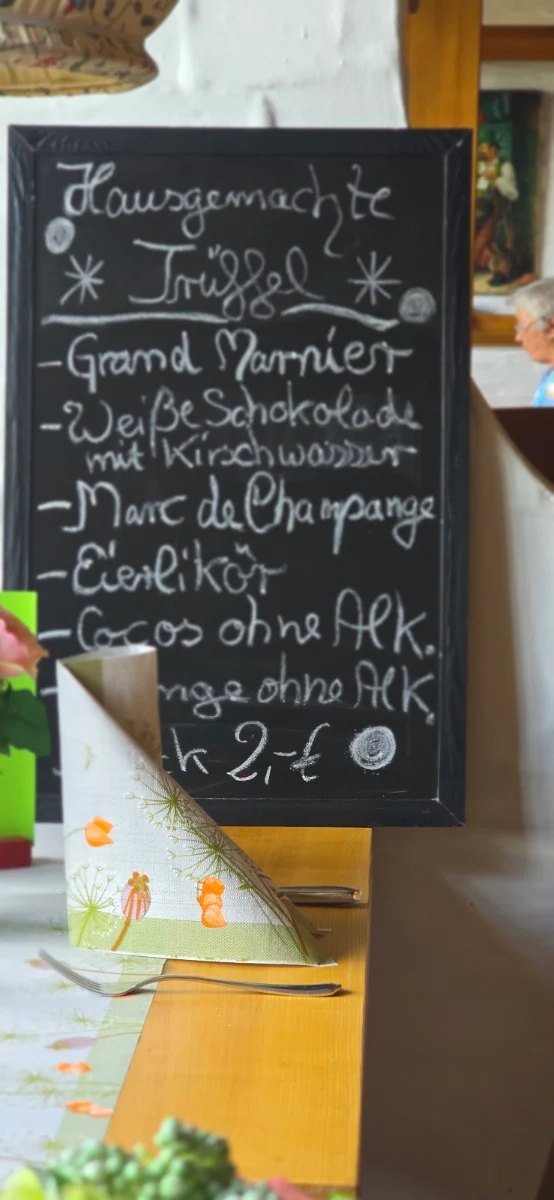 Hausgemachte
Trüffel
- Grand Marnier
- Weiße Schokolade
mit Kirschwasser
- Marc de Champange
- Eierlikör
- Cocos ohne Alk.
ohne Alk.
2,-€